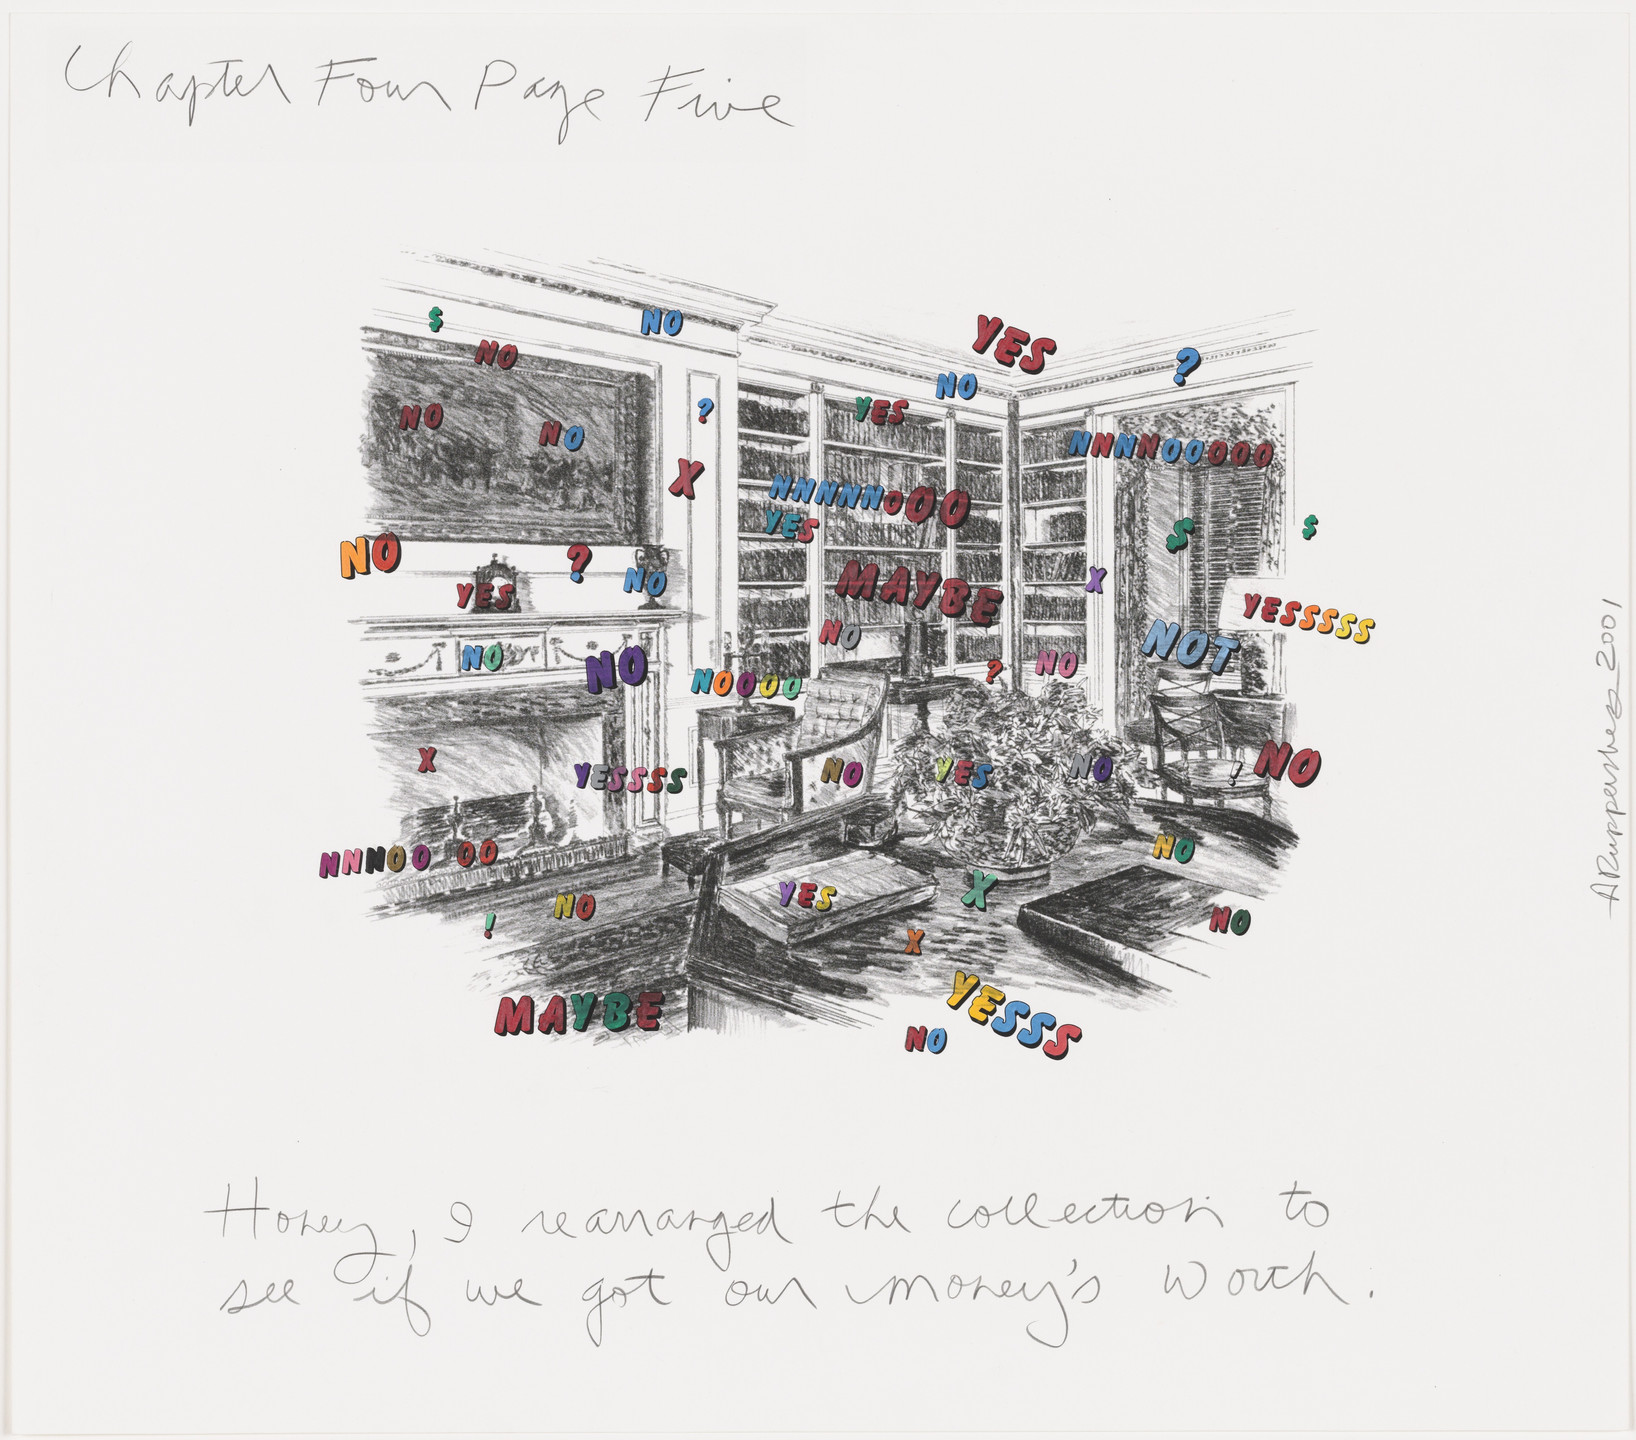 Chapter Four Page Five
$
NO
NO
YES
NO
?
NO
?
YES
NO
NO
NNNNOOOOO
X
NNNNNOOO
YES
$
$
NO
?
NO
MAYBE
X
YES
YESSSSS
NO
NOT
NO
NO
NOOOO
?
NO
X
YESSSS
NO
YES
NO
!
NO
NNNOO OO
NO
YES
X
!
NO
NO
X
MAYBE
YESSS
NO
Honey, I rearranged the collection to
see if we got our money's worth.
ARuppersberg 2001